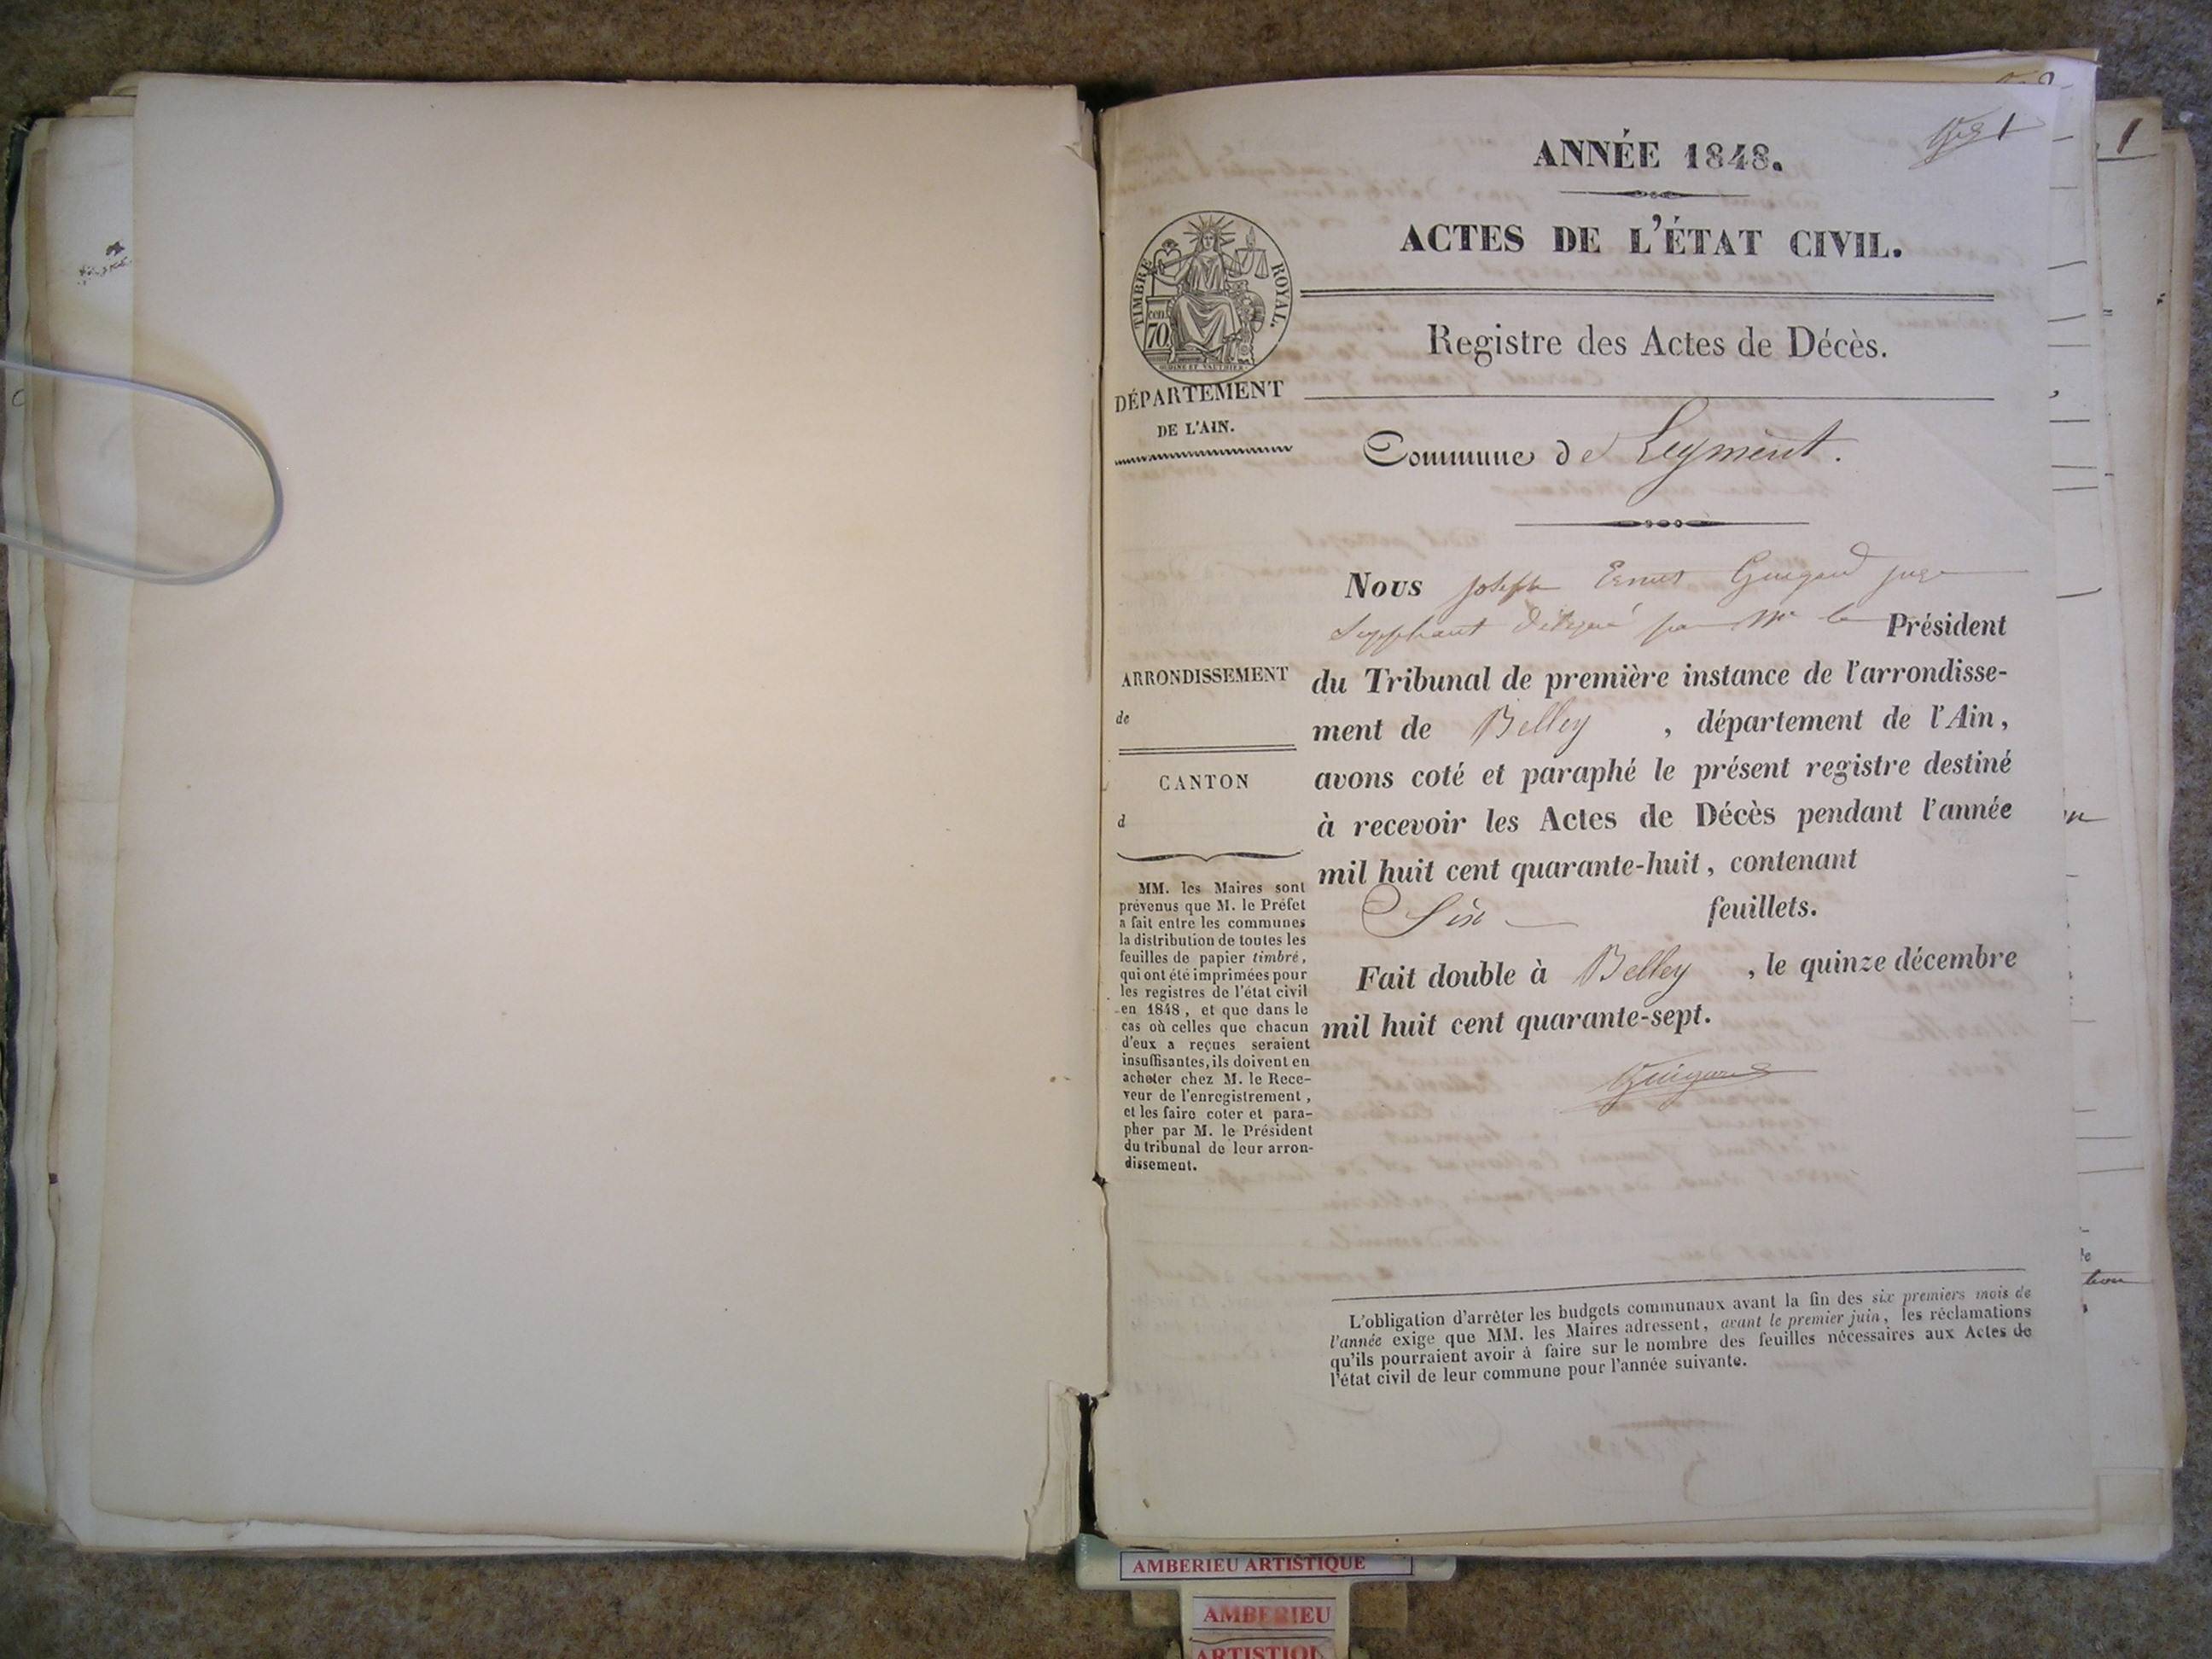 1
ANNÉE 1848.
ACTES DE L'ÉTAT CIVIL.
TIMBRE ROYAL.
cen.
70
Registre des Actes de Décès.
DÉPARTEMENT
DE L'AIN.
Commune de Leyment.
Nous Joseph Ernest Guigard juge
Suppléant délégué par Mr le Président
du Tribunal de première instance de l'arrondisse-
ment de Belley, département de l'Ain,
avons coté et paraphé le présent registre destiné
à recevoir les Actes de Décès pendant l'année
mil huit cent quarante-huit, contenant
Six feuillets.
Fait double à Belley, le quinze décembre
mil huit cent quarante-sept.
Guigard
ARRONDISSEMENT
de
CANTON
d
MM. les Maires sont
prévenus que M. le Préfet
a fait entre les communes
la distribution de toutes les
feuilles de papier timbré,
qui ont été imprimées pour
les registres de l'état civil
en 1848, et que dans le
cas où celles que chacun
d'eux a reçues seraient
insuffisantes, ils doivent en
acheter chez M. le Rece-
veur de l'enregistrement,
et les faire coter et para-
pher par M. le Président
du tribunal de leur arron-
dissement.
L'obligation d'arrêter les budgets communaux avant la fin des six premiers mois de
l'année exige que MM. les Maires adressent, avant le premier juin, les réclamations
qu'ils pourraient avoir à faire sur le nombre des feuilles nécessaires aux Actes de
l'état civil de leur commune pour l'année suivante.
1
AMBERIEU ARTISTIQUE
AMBERIEU